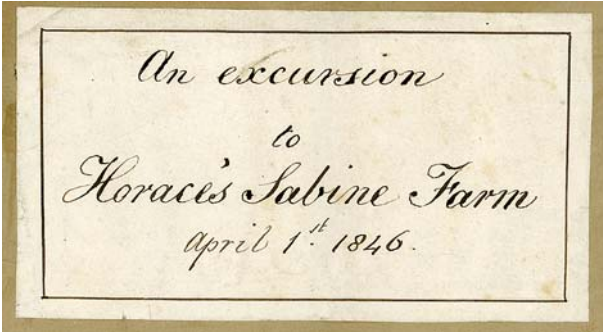 An excursion
to
Horace's Sabine Farm
April 1st. 1846.